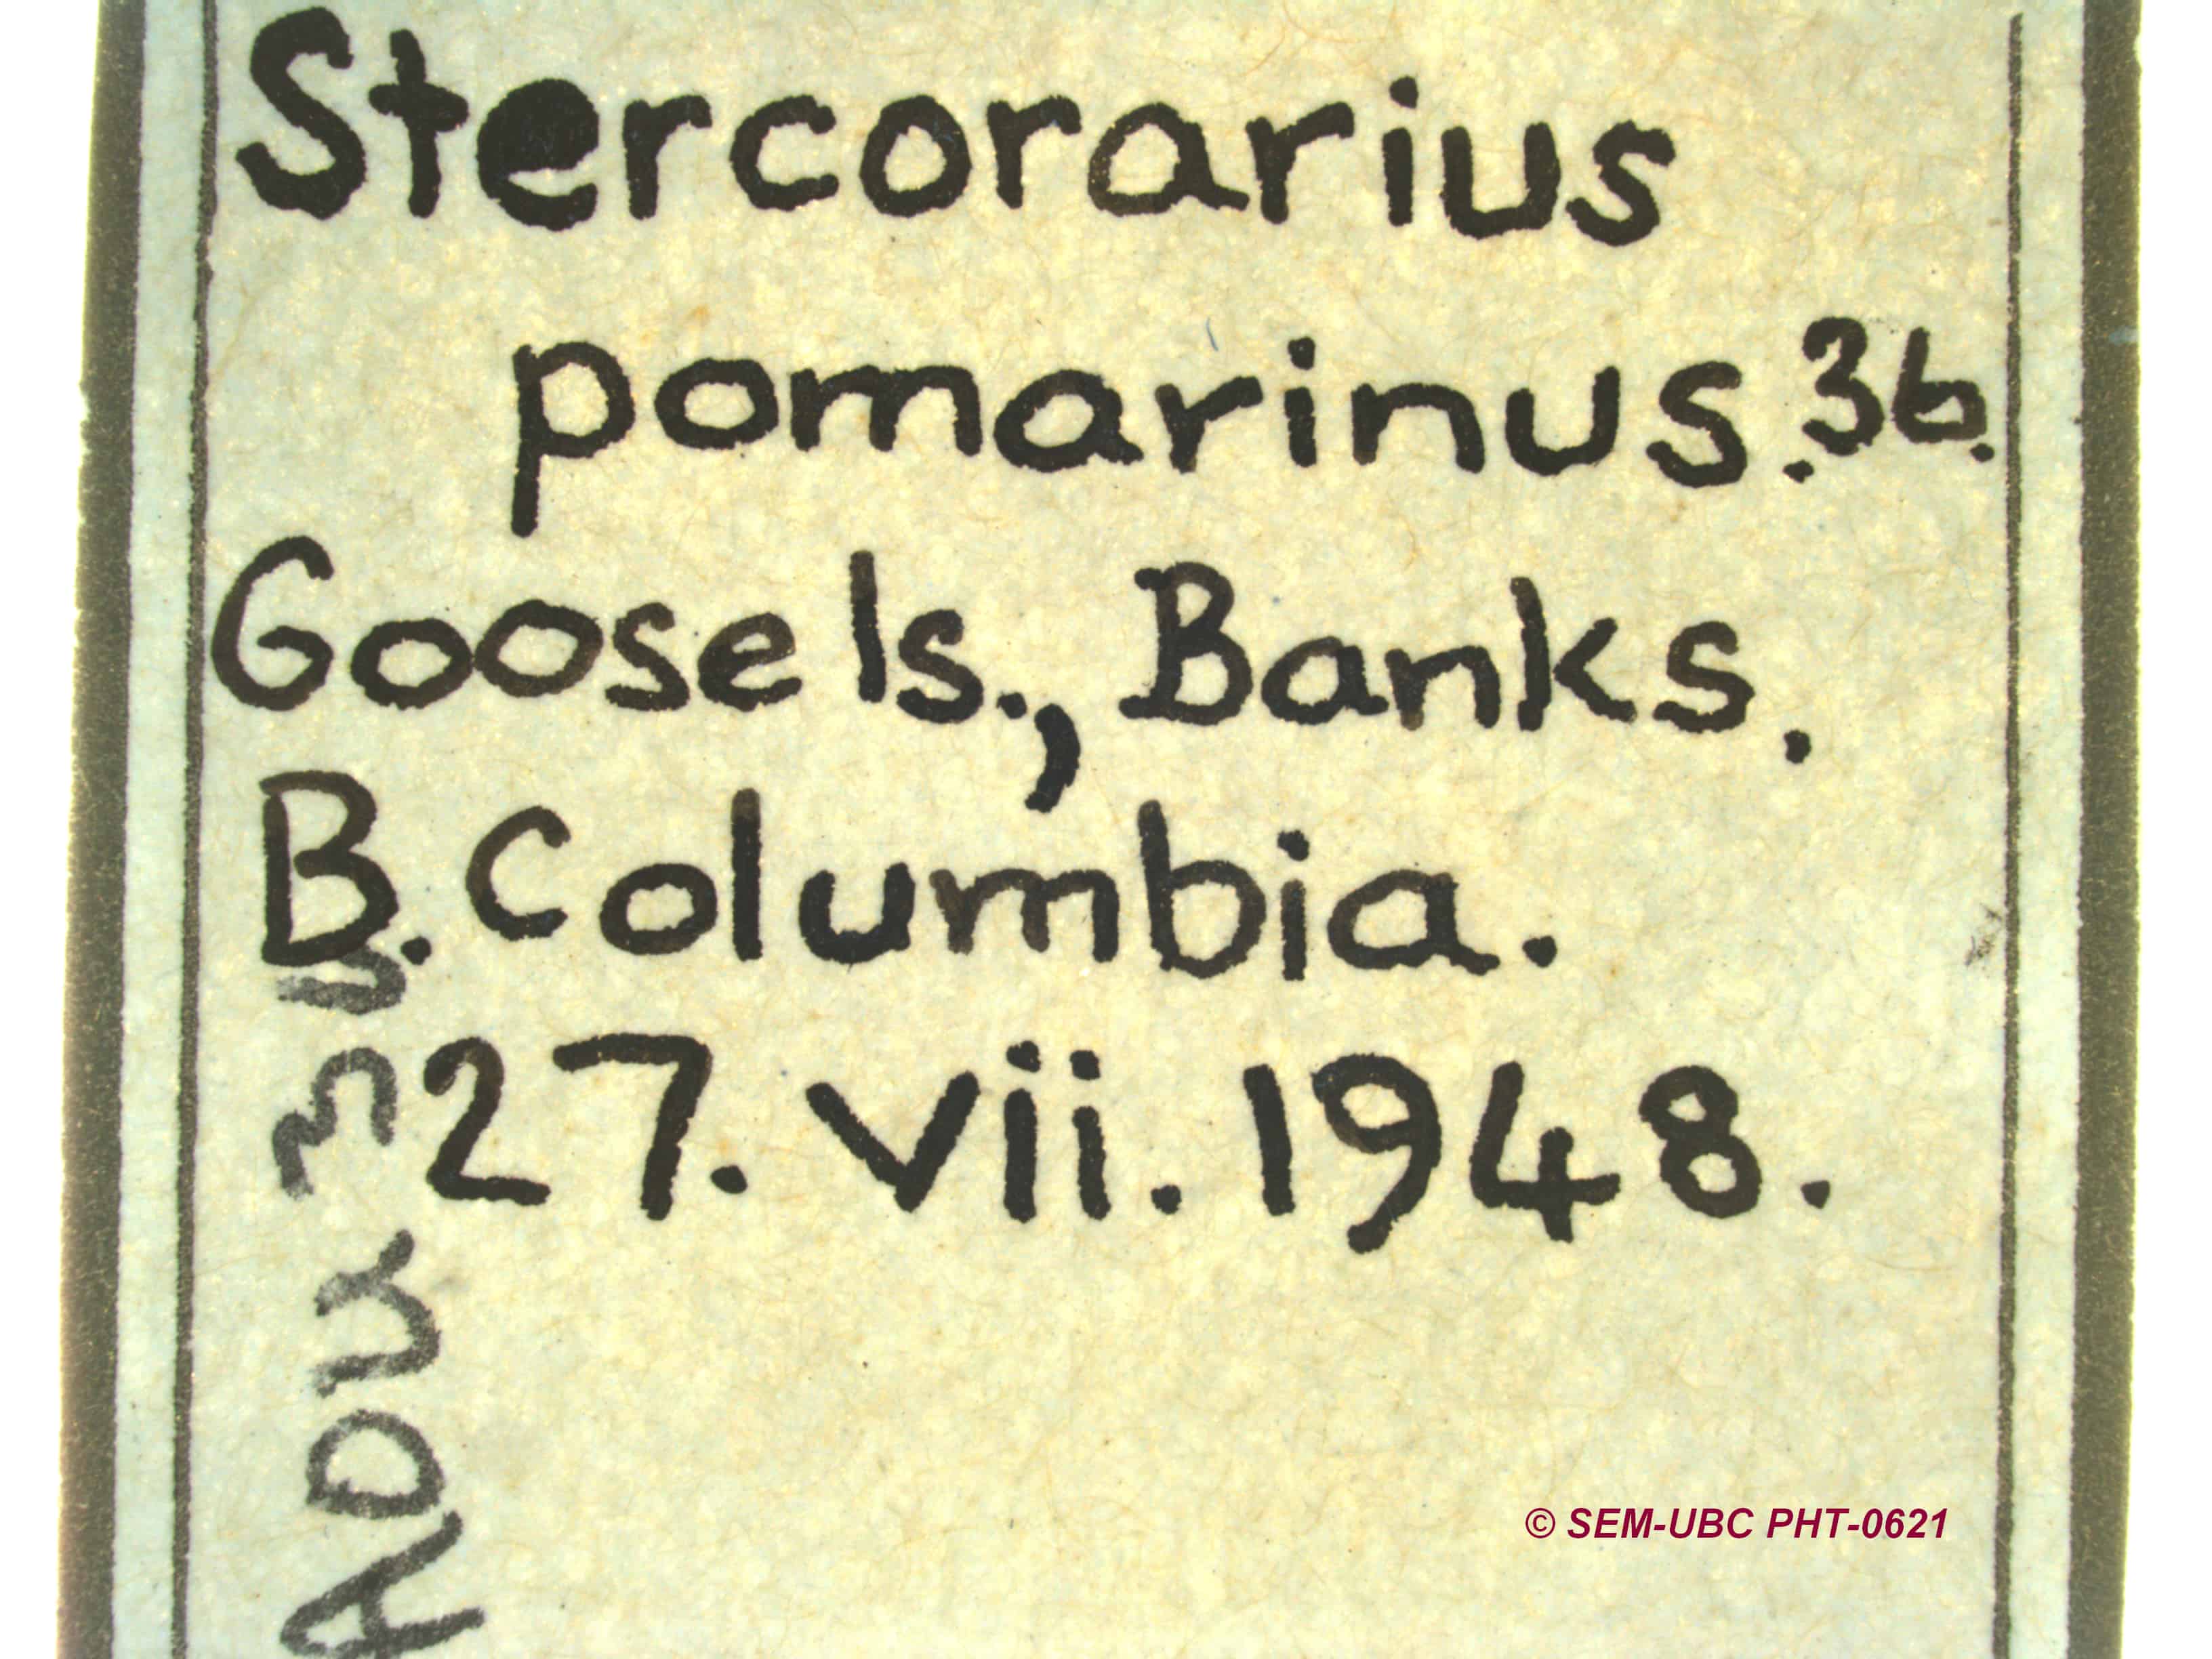 Stercorarius
pomarinus. 3b.
Goose Is., Banks.
B. Columbia.
27. vii. 1948.
© SEM-UBC PHT-0621